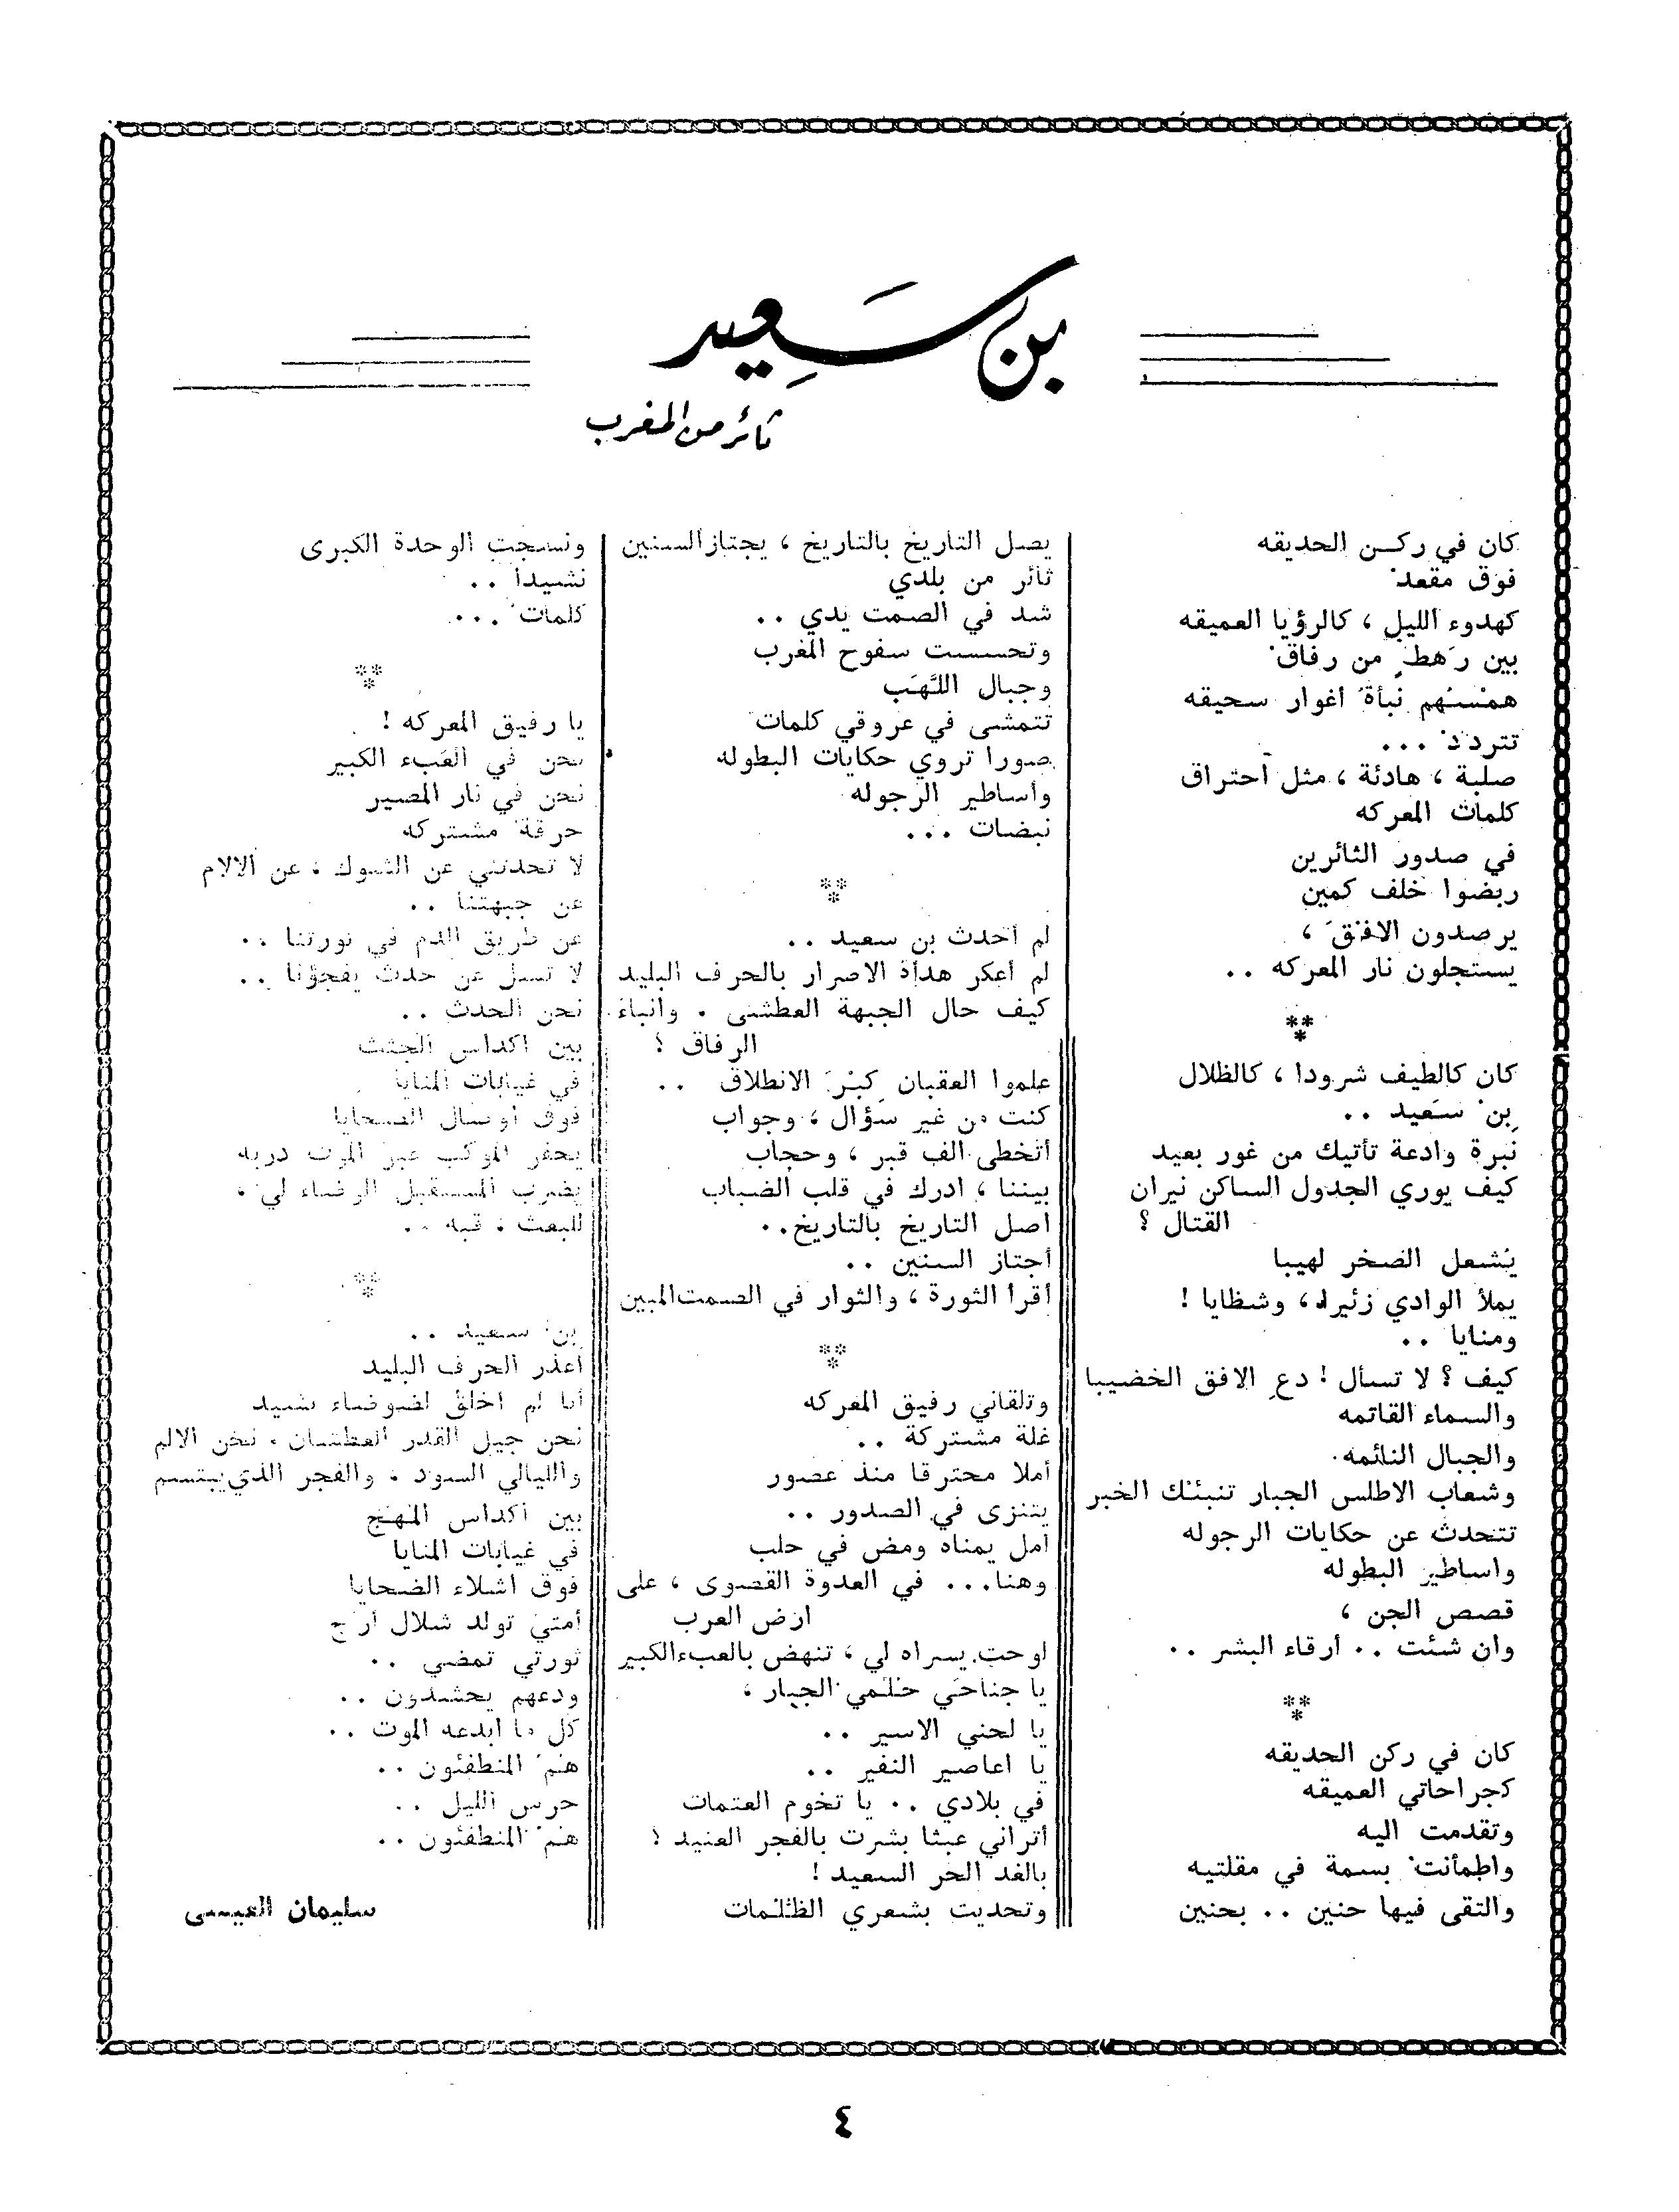 بن سَعِيد
ثائر من المغرب
كان في ركن الحديقه
فوق مقعدْ
كهدوء الليل ، كالرؤيا العميقه
بين رَهطٍ من رفاقْ
همْسُهم نبأةُ أغوار سحيقه
تترددْ ...
صلبة ، هادئة ، مثل احتراق
كلمات المعركه
في صدور الثائرين
ربضوا خلف كمين
يرصدون الافْقَ ،
يستجلون نار المعركه ..
***
كان كالطيف شرودا ، كالظلال
بنْ سَعيد ..
نبرة وادعة تأتيك من غور بعيد
كيف يوري الجدول الساكن نيران
القتال ؟
يُشعل الصخر لهيبا
يملأ الوادي زئيرا، وشظايا !
ومنايا ..
كيف ؟ لا تسأل ! دعِ الافق الخضيبا
والسماء القاتمه
والجبال النائمه
وشعاب الاطلس الجبار تنبئْك الخبر
تتحدث عن حكايات الرجوله
واساطير البطوله
قصص الجن ،
وان شئت .. أرقاء البشر ..
***
كان في ركن الحديقه
كجراحاتي العميقه
وتقدمت اليه
واطمأنتْ بسمة في مقلتيه
والتقى فيها حنين .. بحنين
يصل التاريخ بالتاريخ ، يجتاز السنين
ثائر من بلدي
شد في الصمت يدي ..
وتحسست سفوح المغرب
وجبال اللَّهَب
تتمشى في عروقي كلمات
صورا تروي حكايات البطوله
وأساطير الرجوله
نبضات ...
***
لم أحدث بن سعيد ..
لم أعكر هدأة الاصرار بالحرف البليد
كيف حال الجبهة العطشى . وأنباءُ
الرفاق ؟
علموا العقبان كِبْرَ الانطلاق ..
كنت من غير سؤال ، وجواب
أتخطى الف قبر ، وحجاب
بيننا ، ادرك في قلب الضباب
اصل التاريخ بالتاريخ..
أجتاز السنين ..
أقرأ الثورة ، والثوار في الصمت المبين
***
وتلقاني رفيق المعركه
غلة مشتركة ..
أملا محترقا منذ عصور
يتنزى في الصدور ..
أمل يمناه ومض في حلب
وهنا... في العدوة القصوى ، على
ارض العرب
اوحت يسراه لي ، تنهض بالعبء الكبير
يا جناحَي حلمي الجبار ،
يا لحني الاسير ..
يا اعاصير النفير ..
في بلادي .. يا تخوم العتمات
أتراني عبثا بشرت بالفجر العنيد ؟
بالغد الحر السعيد !
وتحديت بشعري الظلُمات
ونسجت الوحدة الكبرى
نشيدا ..
كلماتْ ...
***
يا رفيق المعركه !
نحن في العبء الكبير
نحن في نار المصير
حرقة مشتركه
لا تحدثني عن الشوك ، عن الالام
عن جبهتنا ..
عن طريق الدم في ثورتنا ..
لا تسل عن حدث يفجؤنا ..
نحن الحدث ..
بين اكداس الجثث
في غيابات المنايا
فوق أوصال الضحايا
يحفر الموكب عبر الموت دربه
يضرب المستقبل الوضاء لي ،
للبعث ، قبه ..
***
بنْ سعيد ..
أعذر الحرف البليد
أنا لم اخلق لضوضاء نشيد
نحن جيل القدر العطشان ، نحن الالم
والليالي السود ، والفجر الذي يبتسم
بين أكداس المهج
في غيابات المنايا
فوق اشلاء الضحايا
أمتي تولد شلال أرج
ثورتي تمضي ..
ودعهم يحشدون ..
كل ما ابدعه الموت ..
همُ المنطفئون ..
حرس الليل ..
همُ المنطفئون ..
سليمان العيسى
٤